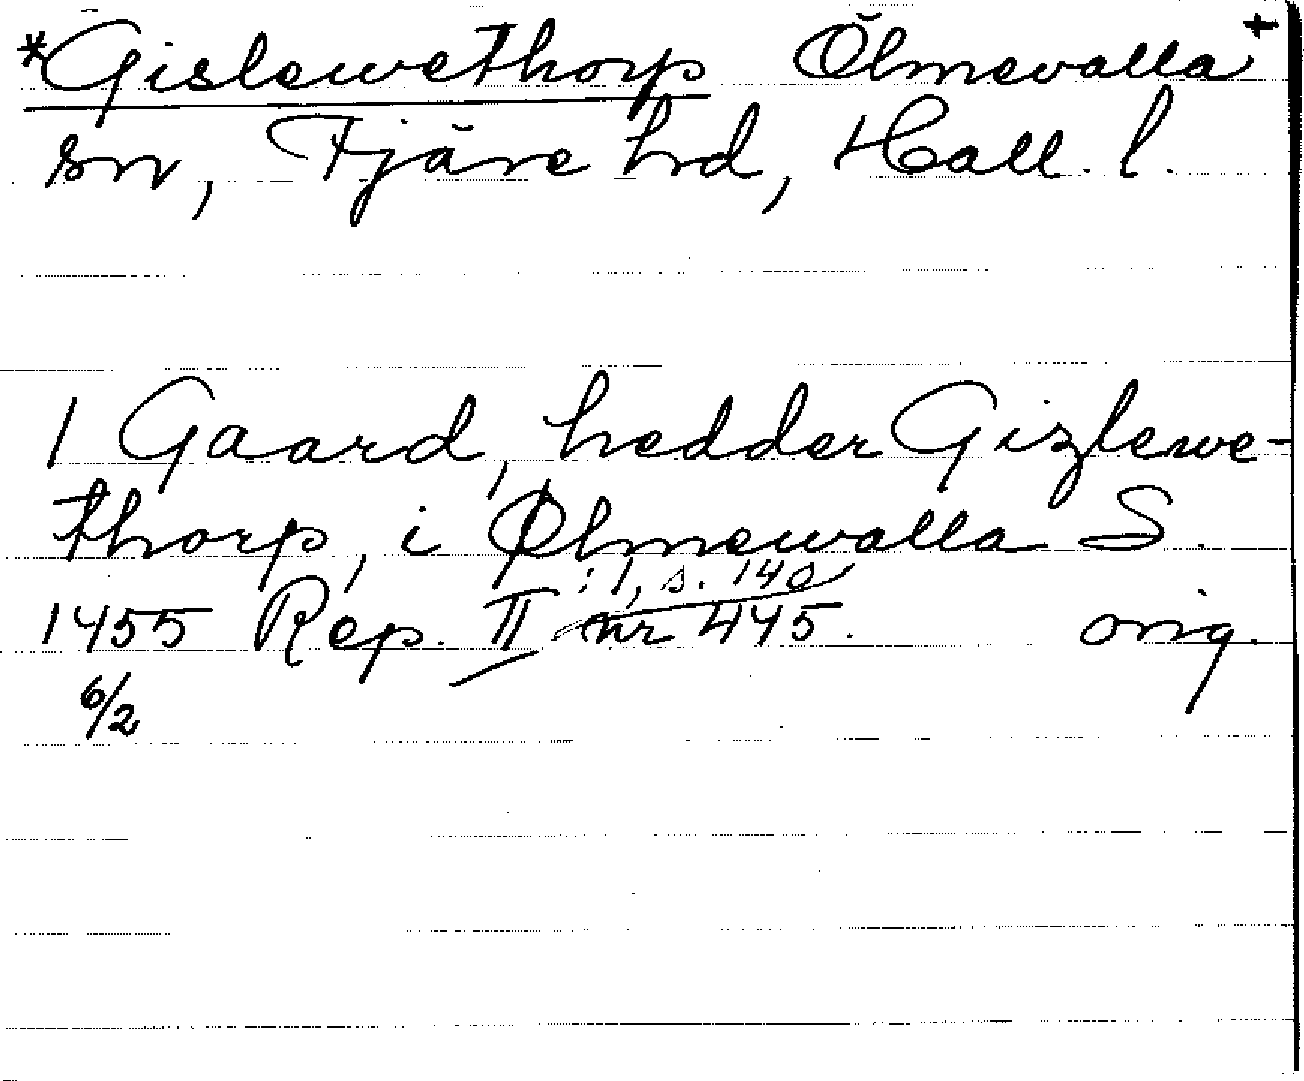 *Gislewethorp Ölmevalla +
sn, Fjäre hd, Hall. l.
1 Gaard, hedder Gizlewe-
thorp, i Ølmewalla S.
:1, s. 140
1455 Rep. II nr 445. orig.
6/2